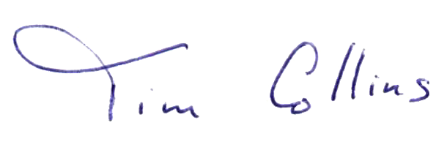 Tim Collins